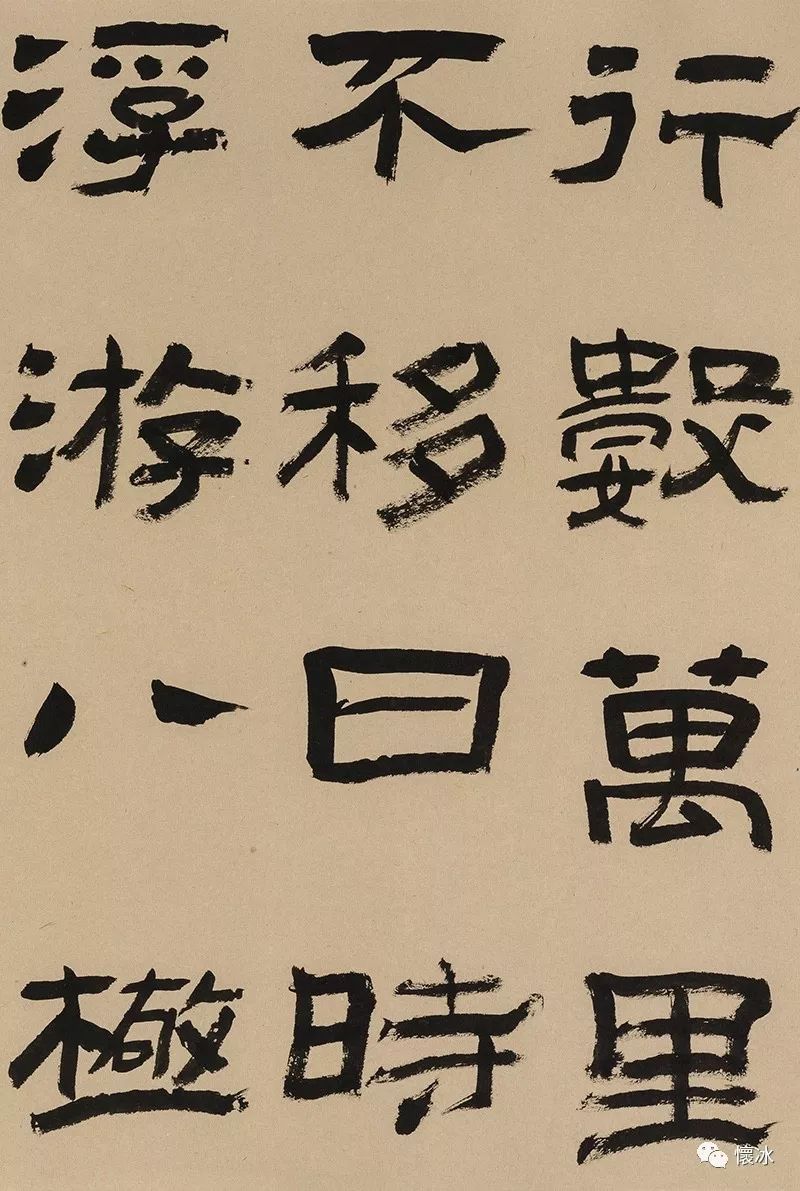 行數萬里
不移日時
浮游八極
懷冰